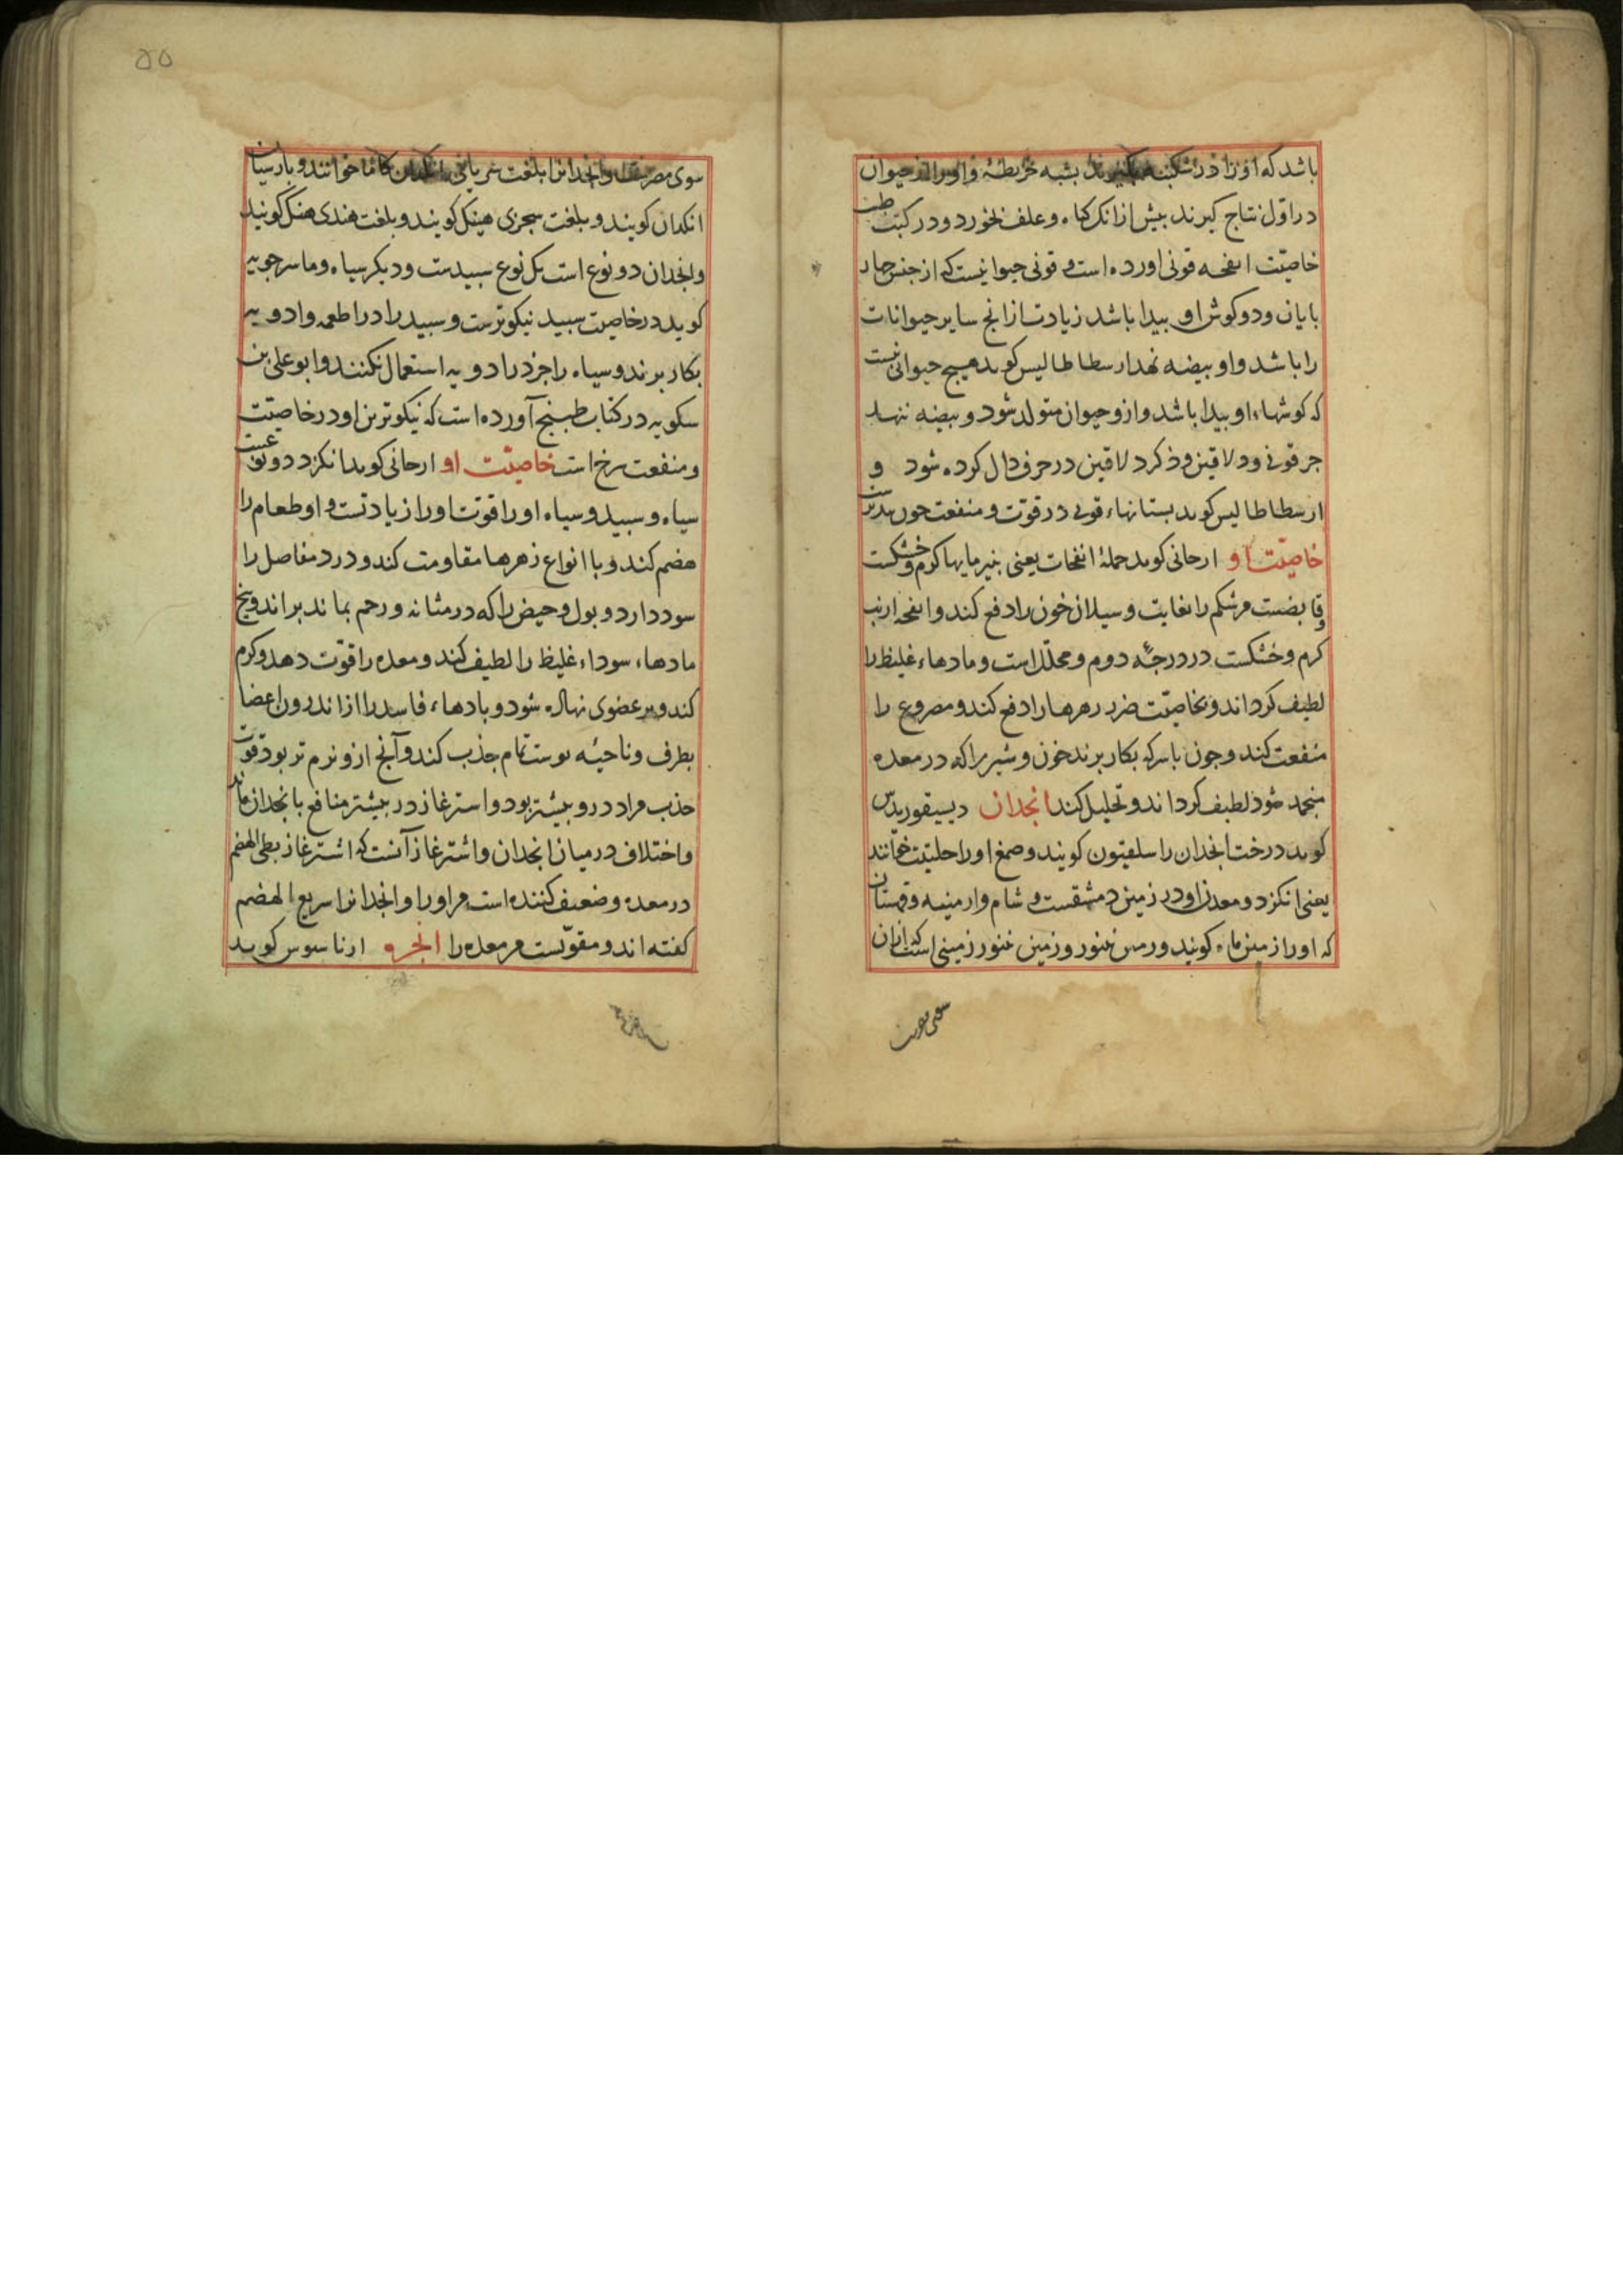 باشد که او را در شکنبه بشبه خریطهٔ و او را از حیوان
در اوّل نتاج کیرند بیش ازانک کیاه و علف نخورد و در کتب طب
خاصیّت انفحه قونی اورده است و قونی حیوانیست که از جنس چهار
بایان و دو کوش او بیدا باشد زیادت ازانج سایر حیوانات
را باشد و او بیضه نهد ارسطاطالیس کوید هیج حیوانی نیست
که کوشهاء او بیدا باشد و ازو حیوان متولد شود و بیضه ننهد
جز قونی و دلاقین و ذکر دلاقین در حرف دال کرده شود و
ارسطاطالیس کوید بستانهاء قونی در قوت و منفعت چون
خاصیّت او ارجانی کوید جملهٔ انفحات یعنی بنیرمایها کرم و خشکست
و قابضست مر شکم را بغایت و سیلان خون را دفع کند و انفحه ارنب
کرم و خشکست در درجهٔ دوم و محلّل است و مادهاء غلیظ را
لطیف کرداند و بخاصیّت ضرر زهرها را دفع کند و مصروع را
منفعت کند و جون با سرکه بکار برند خون و شیر را که در معده
منجمد شود لطیف کرداند و تحلیل کند انجدان دیسیقوریدس
کوید درخت انجدان را سلفیون کویند و صمغ او را حلتیت خوانند
یعنی انکزد و معدن او در زمین دمشقست و شام و ارمنیه و قهستان
که او را زمین ماء کویند و زمین غنور و زمین غنور زمینی است که ازان
سوی مصر و انجدان را بلغت سریانی انکدان کاما خوانند و بارسیان
انکدان کویند و بلغت سجزی هینکل کویند و بلغت هندی هنک کویند
و انجدان دو نوع است یک نوع سبیدست و دیکر سیاه و ماسرجویه
کوید در خاصیت سبید نیکوترست و سبید را در اطعمه و ادویه
بکار برند و سیاه را جز در ادویه استعمال نکنند و ابو علی بن
سکویه در کتاب طبیخ آورده است که نیکوترین او در خاصیّت
و منفعت سرخ است خاصیّت او ارجانی کوید انکزد دو نوعست
سیاه و سبید و سیاه او را قوّت او را زیادتست و او طعام را
هضم کند و با انواع زهرها مقاومت کند و درد مفاصل را
سود دارد و بول و حیض را که در مثانه و رحم بماند براند و بیخ
مادهاء سوداء غلیظ را لطیف کند و معده را قوّت دهد و کرم
کند و بر عضوی نهاده شود و بادهاء فاسد را از اندرون اعضا
بطرف و ناحیهٔ بوست تمام جذب کند و آنج ازو نرم تر بود قوّت
جذب مراد درو بیشتر بود و استرغاز در بیشتر منافع با انجدان ماند
و اختلاف در میان انجدان و اشترغاز آنست که اشترغاز بطی الهضم
در معده و ضعیف کننده است مر او را و انجدان را سریع الهضم
کفته اند و مقوّیست مر معده را انجره ارناسوس کوید
سوی مصرست